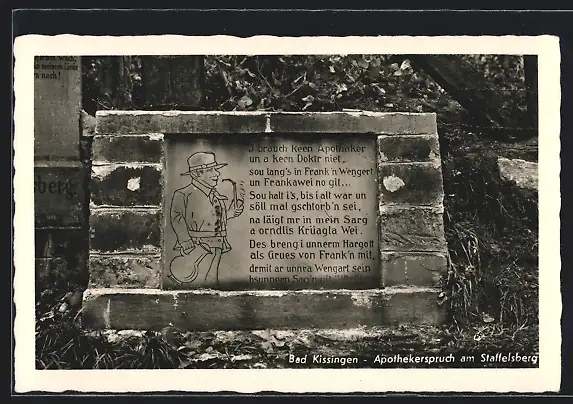 nach!
berg
I brauch keen Apotheker
un a Keen Doktr niet,
sou lang's in Frank'n Wengert
un Frankawei no git...
Sou halt i's, bis i alt war un
söll mal gschtorb'n sei,
na läigt mr in mein Sarg
a orndlis Krüagla Wei.
Des breng i unnerm Hargott
als Grues von Frank'n mit,
demit ar unnra Wengart sein
Bad Kissingen - Apothekerspruch am Staffelsberg